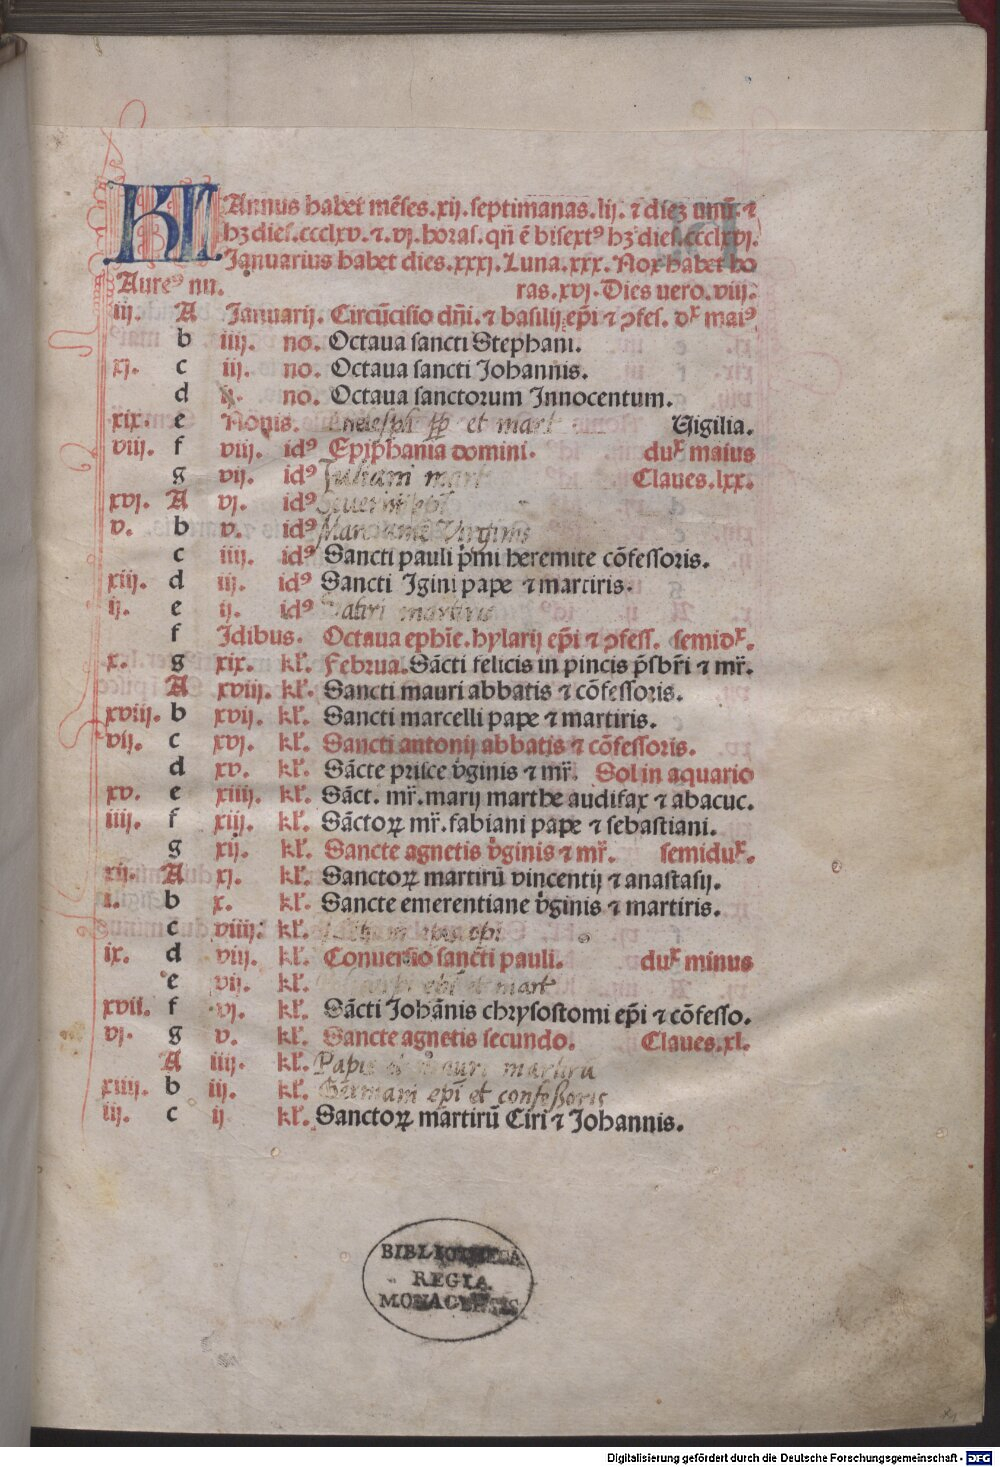 KL Annus habet mēses.xij. septimanas.lij. ⁊ dieʒ unū ⁊
hʒ dies.ccclxv.⁊.vj.horas.qñ ē bisextꝰ hʒ dies.ccclxvj.
Januarius habet dies.xxxj.Luna.xxx.Nox habet ho
Aureꝰ nu. ras.xvj.Dies uero.viij.
iij. A Januarij. Circūcisio dñi.⁊ basilij ep̄i ⁊ ꝯfes. dx̄ maiꝰ
b iiij. no. Octaua sancti Stephani.
xj. c iij. no. Octaua sancti Johannis.
d ij. no. Octaua sanctorum Innocentum.
xix. e Nonis. et mart Uigilia.
viij. f viij. idꝰ Epiphania domini. dux̄ maius
g vij. idꝰ Juliani mart Claues.lxx.
xvj. A vj. idꝰ Seuerini ep̄i
v. b v. idꝰ Marciane Virginis
c iiij. idꝰ Sancti pauli p̄mi heremite cōfessoris.
xiij. d iij. idꝰ Sancti Igini pape ⁊ martiris.
ij. e ij. idꝰ martiris
f Idibus. Octaua ephīe.hylarij ep̄i ⁊ ꝯfess. semidx̄.
x. g xix. kl̄. Februa.Sācti felicis in pincis p̄sbr̄i ⁊ mr̄.
A xviij. kl̄. Sancti mauri abbatis ⁊ cōfessoris.
xviij. b xvij. kl̄. Sancti marcelli pape ⁊ martiris.
vij. c xvj. kl̄. Sancti antonij abbatis ⁊ cōfessoris.
d xv. kl̄. Sācte prisce v̄ginis ⁊ mr̄. Sol in aquario
xv. e xiiij. kl̄. Sāct. mr̄.marij marthe audifax ⁊ abacuc.
iiij. f xiij. kl̄. Sāctoꝝ mr̄.fabiani pape ⁊ sebastiani.
g xij. kl̄. Sancte agnetis v̄ginis ⁊ mr̄. semidux̄.
xij. A xj. kl̄. Sanctoꝝ martirū vincentij ⁊ anastasij.
i. b x. kl̄. Sancte emerentiane v̄ginis ⁊ martiris.
c viiij. kl̄. ep̄i
ix. d viij. kl̄. Conuersio sancti pauli. dux̄ minus
e vij. kl̄. ep̄i et mart
xvij. f vj. kl̄. Sācti Johānis chrysostomi ep̄i ⁊ cōfesso.
vj. g v. kl̄. Sancte agnetis secundo. Claues.xl.
A iiij. kl̄. Papie et Mauri martirū
xiiij. b iij. kl̄. Germani ep̄i et confessoris
iij. c ij kl̄. Sanctoꝝ martirū Ciri ⁊ Johannis.
BIBLIOTHECA
REGIA
MONACENSIS
Digitalisierung gefördert durch die Deutsche Forschungsgemeinschaft - DFG